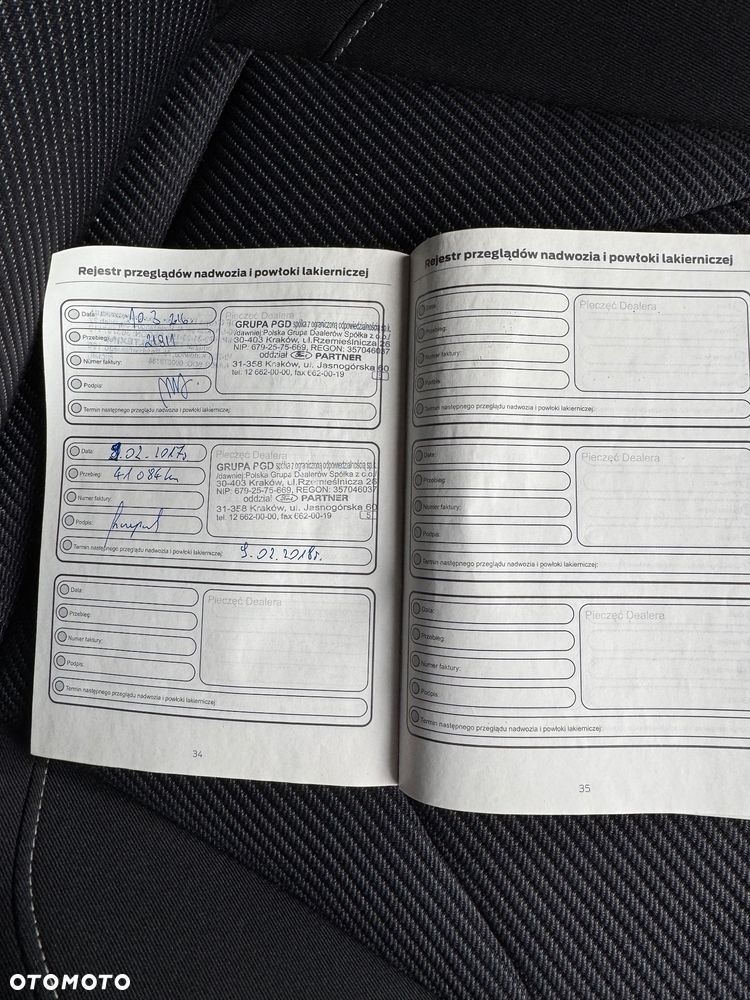 Rejestr przeglądów nadwozia i powłoki lakierniczej
Data: 10.3.2016r.
Przebieg:
Numer faktury:
Podpis:
Termin następnego przeglądu nadwozia i powłoki lakierniczej:
Pieczęć Dealera
GRUPA PGD spółka z ograniczoną odpowiedzialnością sp.k.
/dawniej Polska Grupa Dealerów Spółka z o.o./
30-403 Kraków, ul.Rzemieślnicza 26
NIP: 679-25-75-669, REGON: 357046037
oddział Ford PARTNER
31-358 Kraków, ul. Jasnogórska 60
tel. 12 662-00-00, fax 662-00-19
Data: 9.02.2017r
Przebieg: 41084km
Numer faktury:
Podpis:
Termin następnego przeglądu nadwozia i powłoki lakierniczej: 9.02.2018r.
Pieczęć Dealera
GRUPA PGD spółka z ograniczoną odpowiedzialnością sp.k.
/dawniej Polska Grupa Dealerów Spółka z o.o./
30-403 Kraków, ul.Rzemieślnicza 26
NIP: 679-25-75-669, REGON: 357046037
oddział Ford PARTNER
31-358 Kraków, ul. Jasnogórska 60
tel. 12 662-00-00, fax 662-00-19
Data:
Przebieg:
Numer faktury:
Podpis:
Termin następnego przeglądu nadwozia i powłoki lakierniczej:
Pieczęć Dealera
34
Rejestr przeglądów nadwozia i powłoki lakierniczej
Data:
Przebieg:
Numer faktury:
Podpis:
Termin następnego przeglądu nadwozia i powłoki lakierniczej:
Pieczęć Dealera
Data:
Przebieg:
Numer faktury:
Podpis:
Termin następnego przeglądu nadwozia i powłoki lakierniczej:
Pieczęć Dealera
Data:
Przebieg:
Numer faktury:
Podpis
Termin następnego przeglądu nadwozia i powłoki lakierniczej:
Pieczęć Dealera
35
OTOMOTO